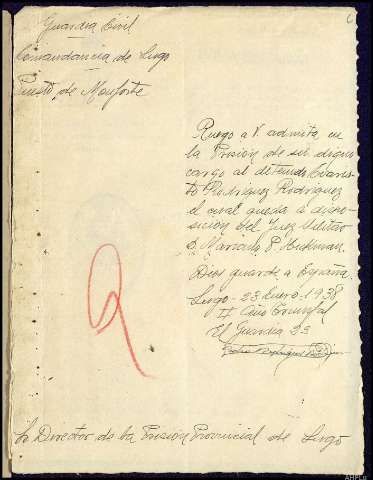 6
Guardia Civil
Comandancia de Lugo
Puesto de Monforte
Ruego a V. admita en
la Prisión de su digno
cargo al detenido Evaris-
to Rodríguez Rodríguez
el cual queda a dispo-
sición del Juez Militar
D. Marcial P.
Dios guarde a España.
Lugo - 23 Enero 1938
II Año Triunfal
El Guardia 2º
Rodríguez
Sr Director de la Prisión Provincial de Lugo
AHPLu